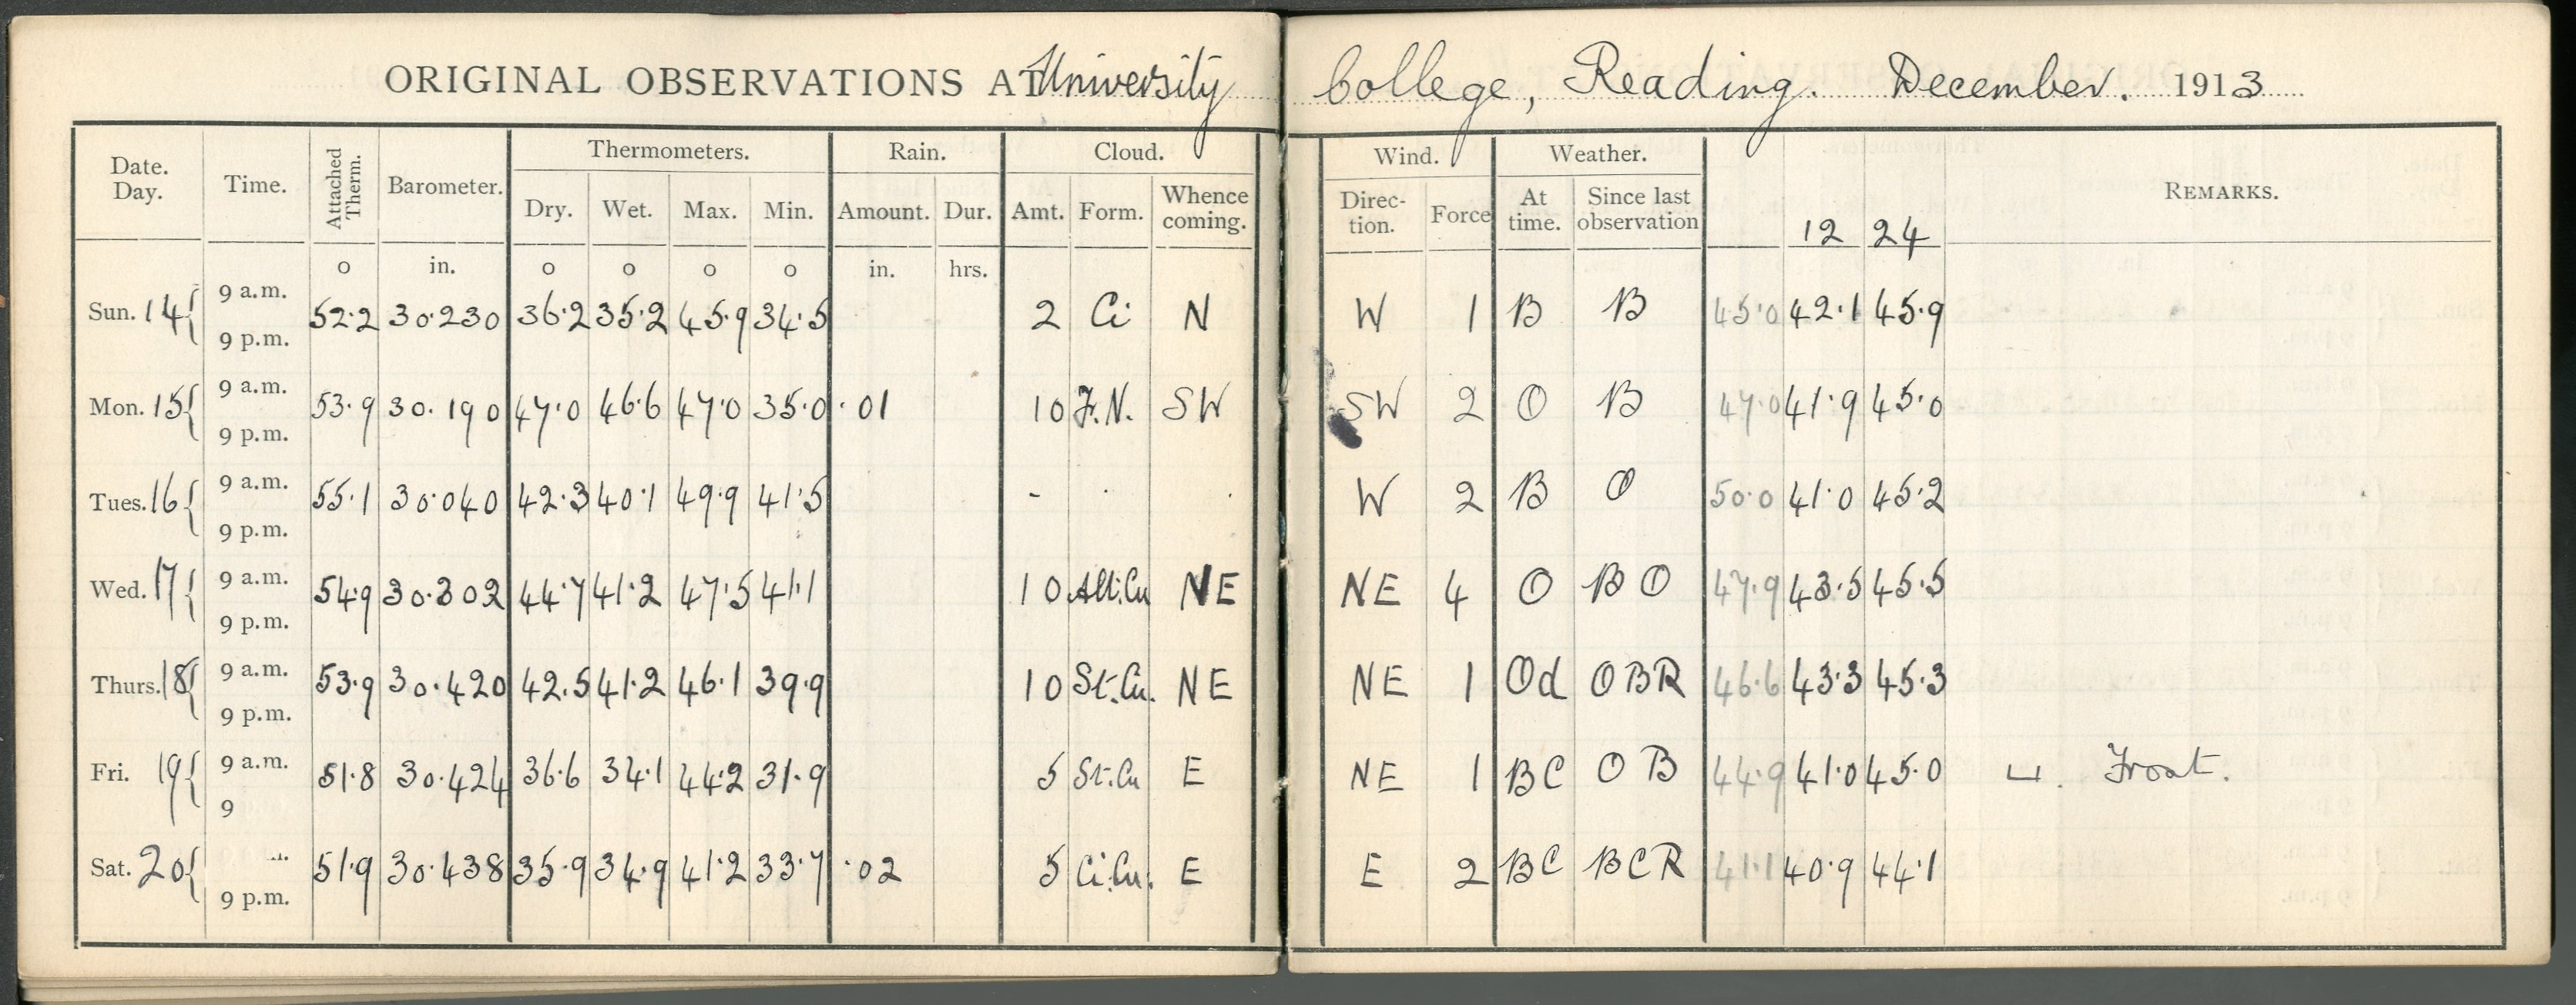 ORIGINAL OBSERVATIONS AT University College, Reading. December. 1913
Date. Day. Time. Attached Therm. Barometer. Thermometers. Rain. Cloud. Wind. Weather. REMARKS.
Dry. Wet. Max. Min. Amount. Dur. Amt. Form. Whence coming. Direc- tion. Force At time. Since last observation 12 24
o in. o o o o in. hrs.
Sun. 14 { 9 a.m. 52.2 30.230 36.2 35.2 45.9 34.5 2 Ci N W 1 B B 45.0 42.1 45.9
9 p.m.
Mon. 15 { 9 a.m. 53.9 30.190 47.0 46.6 47.0 35.0 .01 10 F.N. SW SW 2 O B 47.0 41.9 45.0
9 p.m.
Tues. 16 { 9 a.m. 55.1 30.040 42.3 40.1 49.9 41.5 - . . W 2 B O 50.0 41.0 45.2
9 p.m.
Wed. 17 { 9 a.m. 54.9 30.302 44.7 41.2 47.5 41.1 10 Alt.Cu NE NE 4 O B O 47.9 43.5 45.5
9 p.m.
Thurs. 18 { 9 a.m. 53.9 30.420 42.5 41.2 46.1 39.9 10 St.Cu. NE NE 1 Od OBR 46.6 43.3 45.3
9 p.m.
Fri. 19 { 9 a.m. 51.8 30.424 36.6 34.1 44.2 31.9 5 St.Cu E NE 1 BC O B 44.9 41.0 45.0 ⌴. Frost.
9
Sat. 20 { 51.9 30.438 35.9 34.9 41.2 33.7 .02 5 Ci.Cu. E E 2 BC BCR 41.1 40.9 44.1
9 p.m.